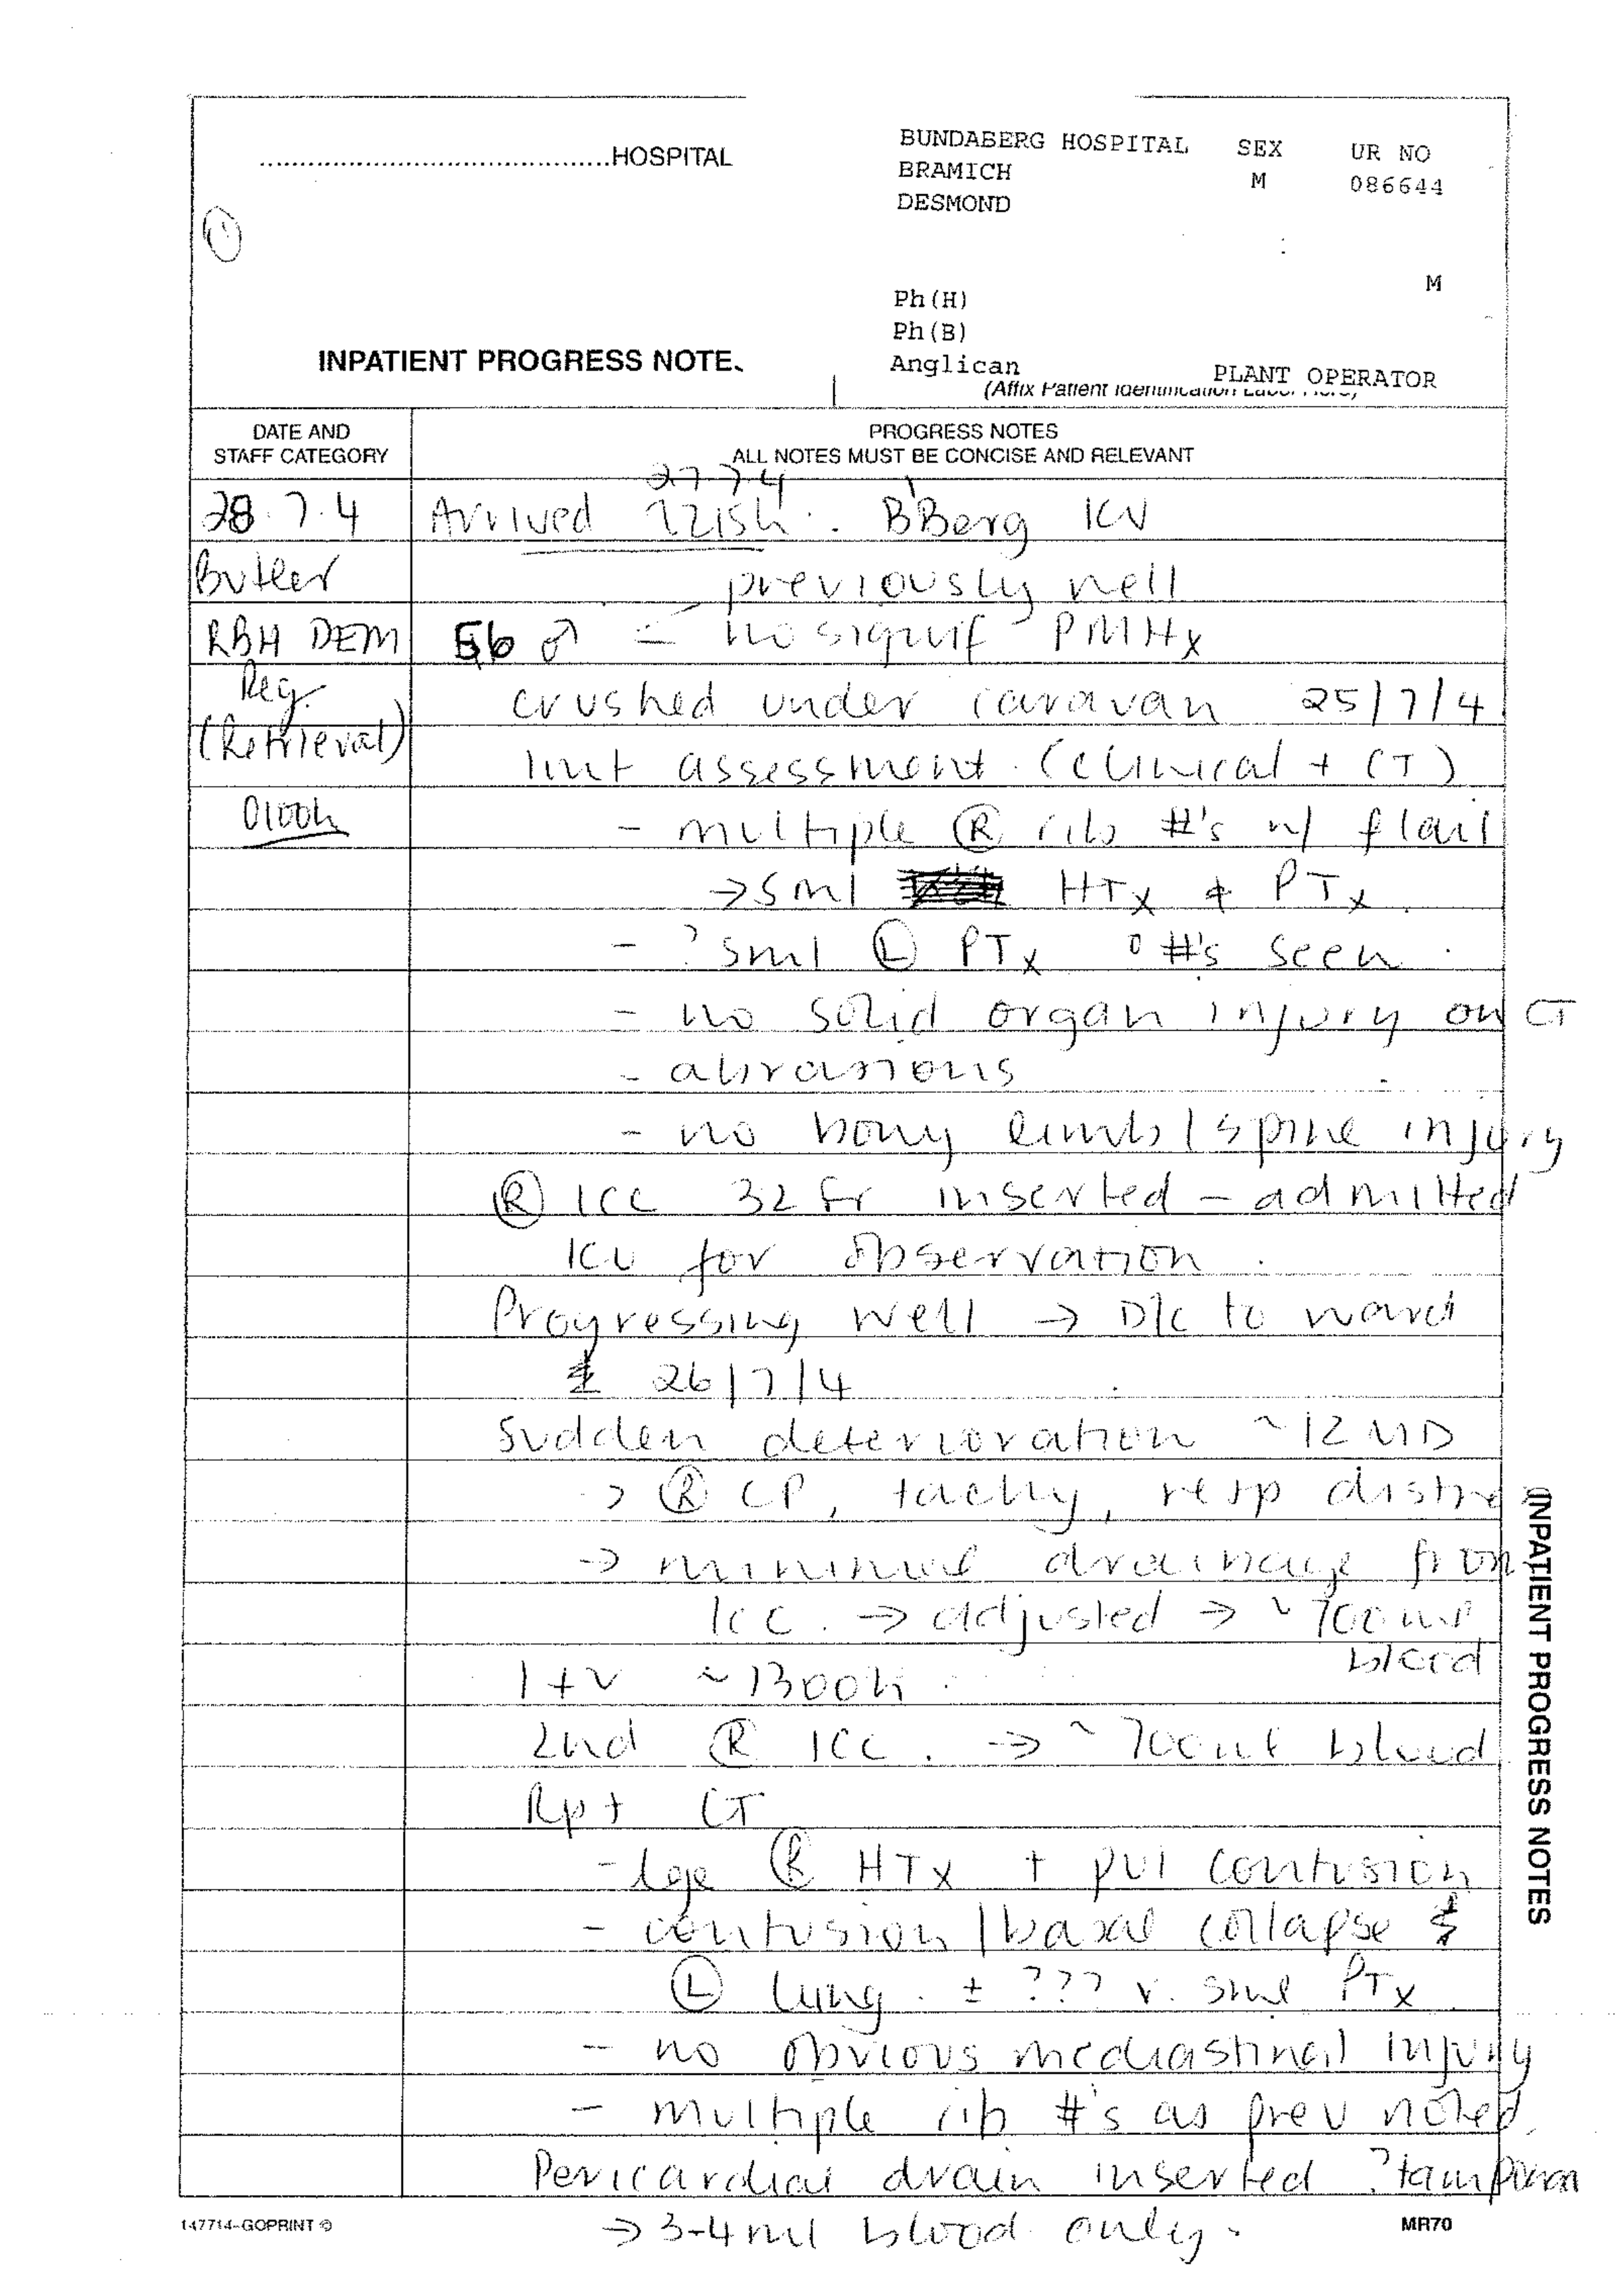 BUNDABERG HOSPITAL SEX UR NO
........................................HOSPITAL
BRAMICH M 086644
DESMOND
M
Ph(H)
Ph(B)
INPATIENT PROGRESS NOTE
Anglican PLANT OPERATOR
(Affix Patient Identification
DATE AND STAFF CATEGORY
PROGRESS NOTES
ALL NOTES MUST BE CONCISE AND RELEVANT
27 7 4
28.7.4 Arrived 2215h. B'Berg ICU
Butler previously well
RBH DEM 56 ♂ - no signif PMHx
Reg. crushed under caravan 25/7/4
(Retrieval) Init assessment. (clinical + CT)
0100h - multiple Ⓡ rib #'s w/ flail
→ sml HTx + PTx.
- ? sml Ⓛ PTx ° #'s seen.
- no solid organ injury on CT
- abrasions
- no bony limb / spine injury
Ⓡ ICC 32 Fr inserted - admitted
ICU for observation.
Progressing well → D/c to ward
26/7/4
Sudden deterioration ~ 12 MD
→ Ⓡ CP, tachy, resp distress
→ minimal drainage from
ICC. → adjusted → ~ 700ml
blood
I + V ~ 1300h.
2nd Ⓡ ICC. → ~ 700ml blood
Rpt CT
- lge Ⓡ HTx + pul contusion
- contusion / basal collapse
Ⓛ lung. ± ??? v. sml PTx
- no obvious mediastinal injury
- multiple rib #'s as prev noted.
Pericardial drain inserted ?tampon
→ 3-4ml blood only.
INPATIENT PROGRESS NOTES
147714-GOPRINT © MR70